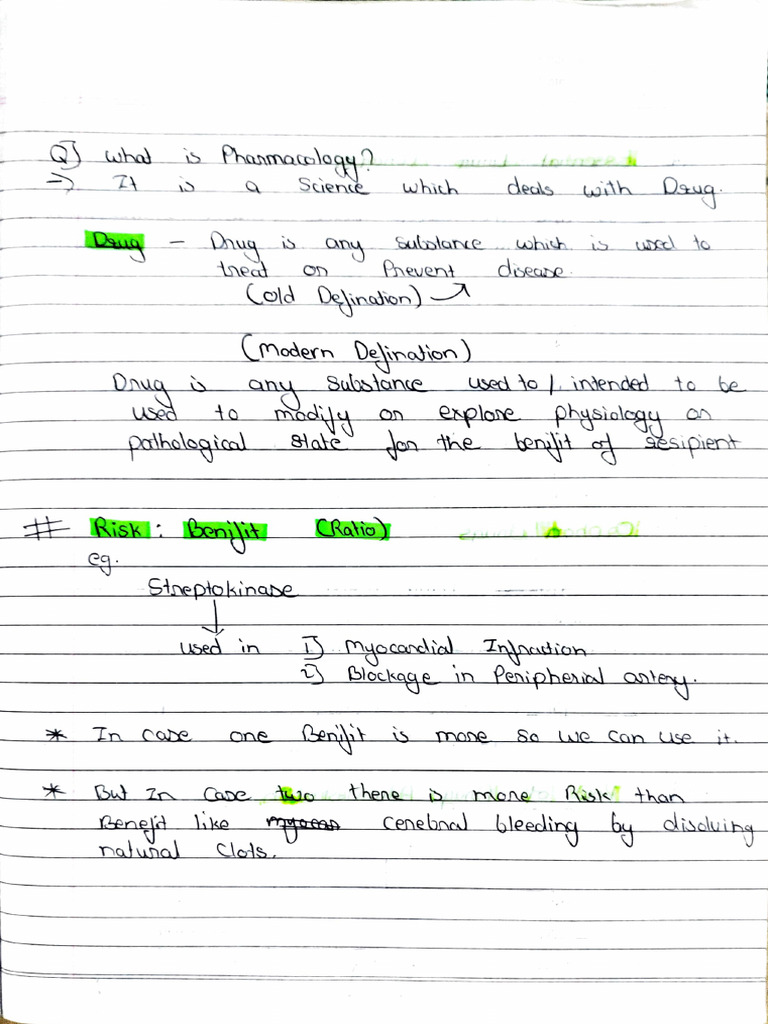 Q) What is Pharmacology?
→ It is a Science which deals with Drug.
Drug – Drug is any substance which is used to
treat or Prevent disease.
(old Defination)
(Modern Defination)
Drug is any substance used to / intended to be
used to modify or explore physiology or
pathological state for the benifit of resipient
# Risk : Benifit (Ratio)
eg.
Streptokinase
↓
used in 1) Myocardial Infraction
2) Blockage in Peripherial artery.
* In case one Benifit is more so we can use it.
* But In case two there is more Risk than
Benefit like cerebral bleeding by disolving
natural Clots.